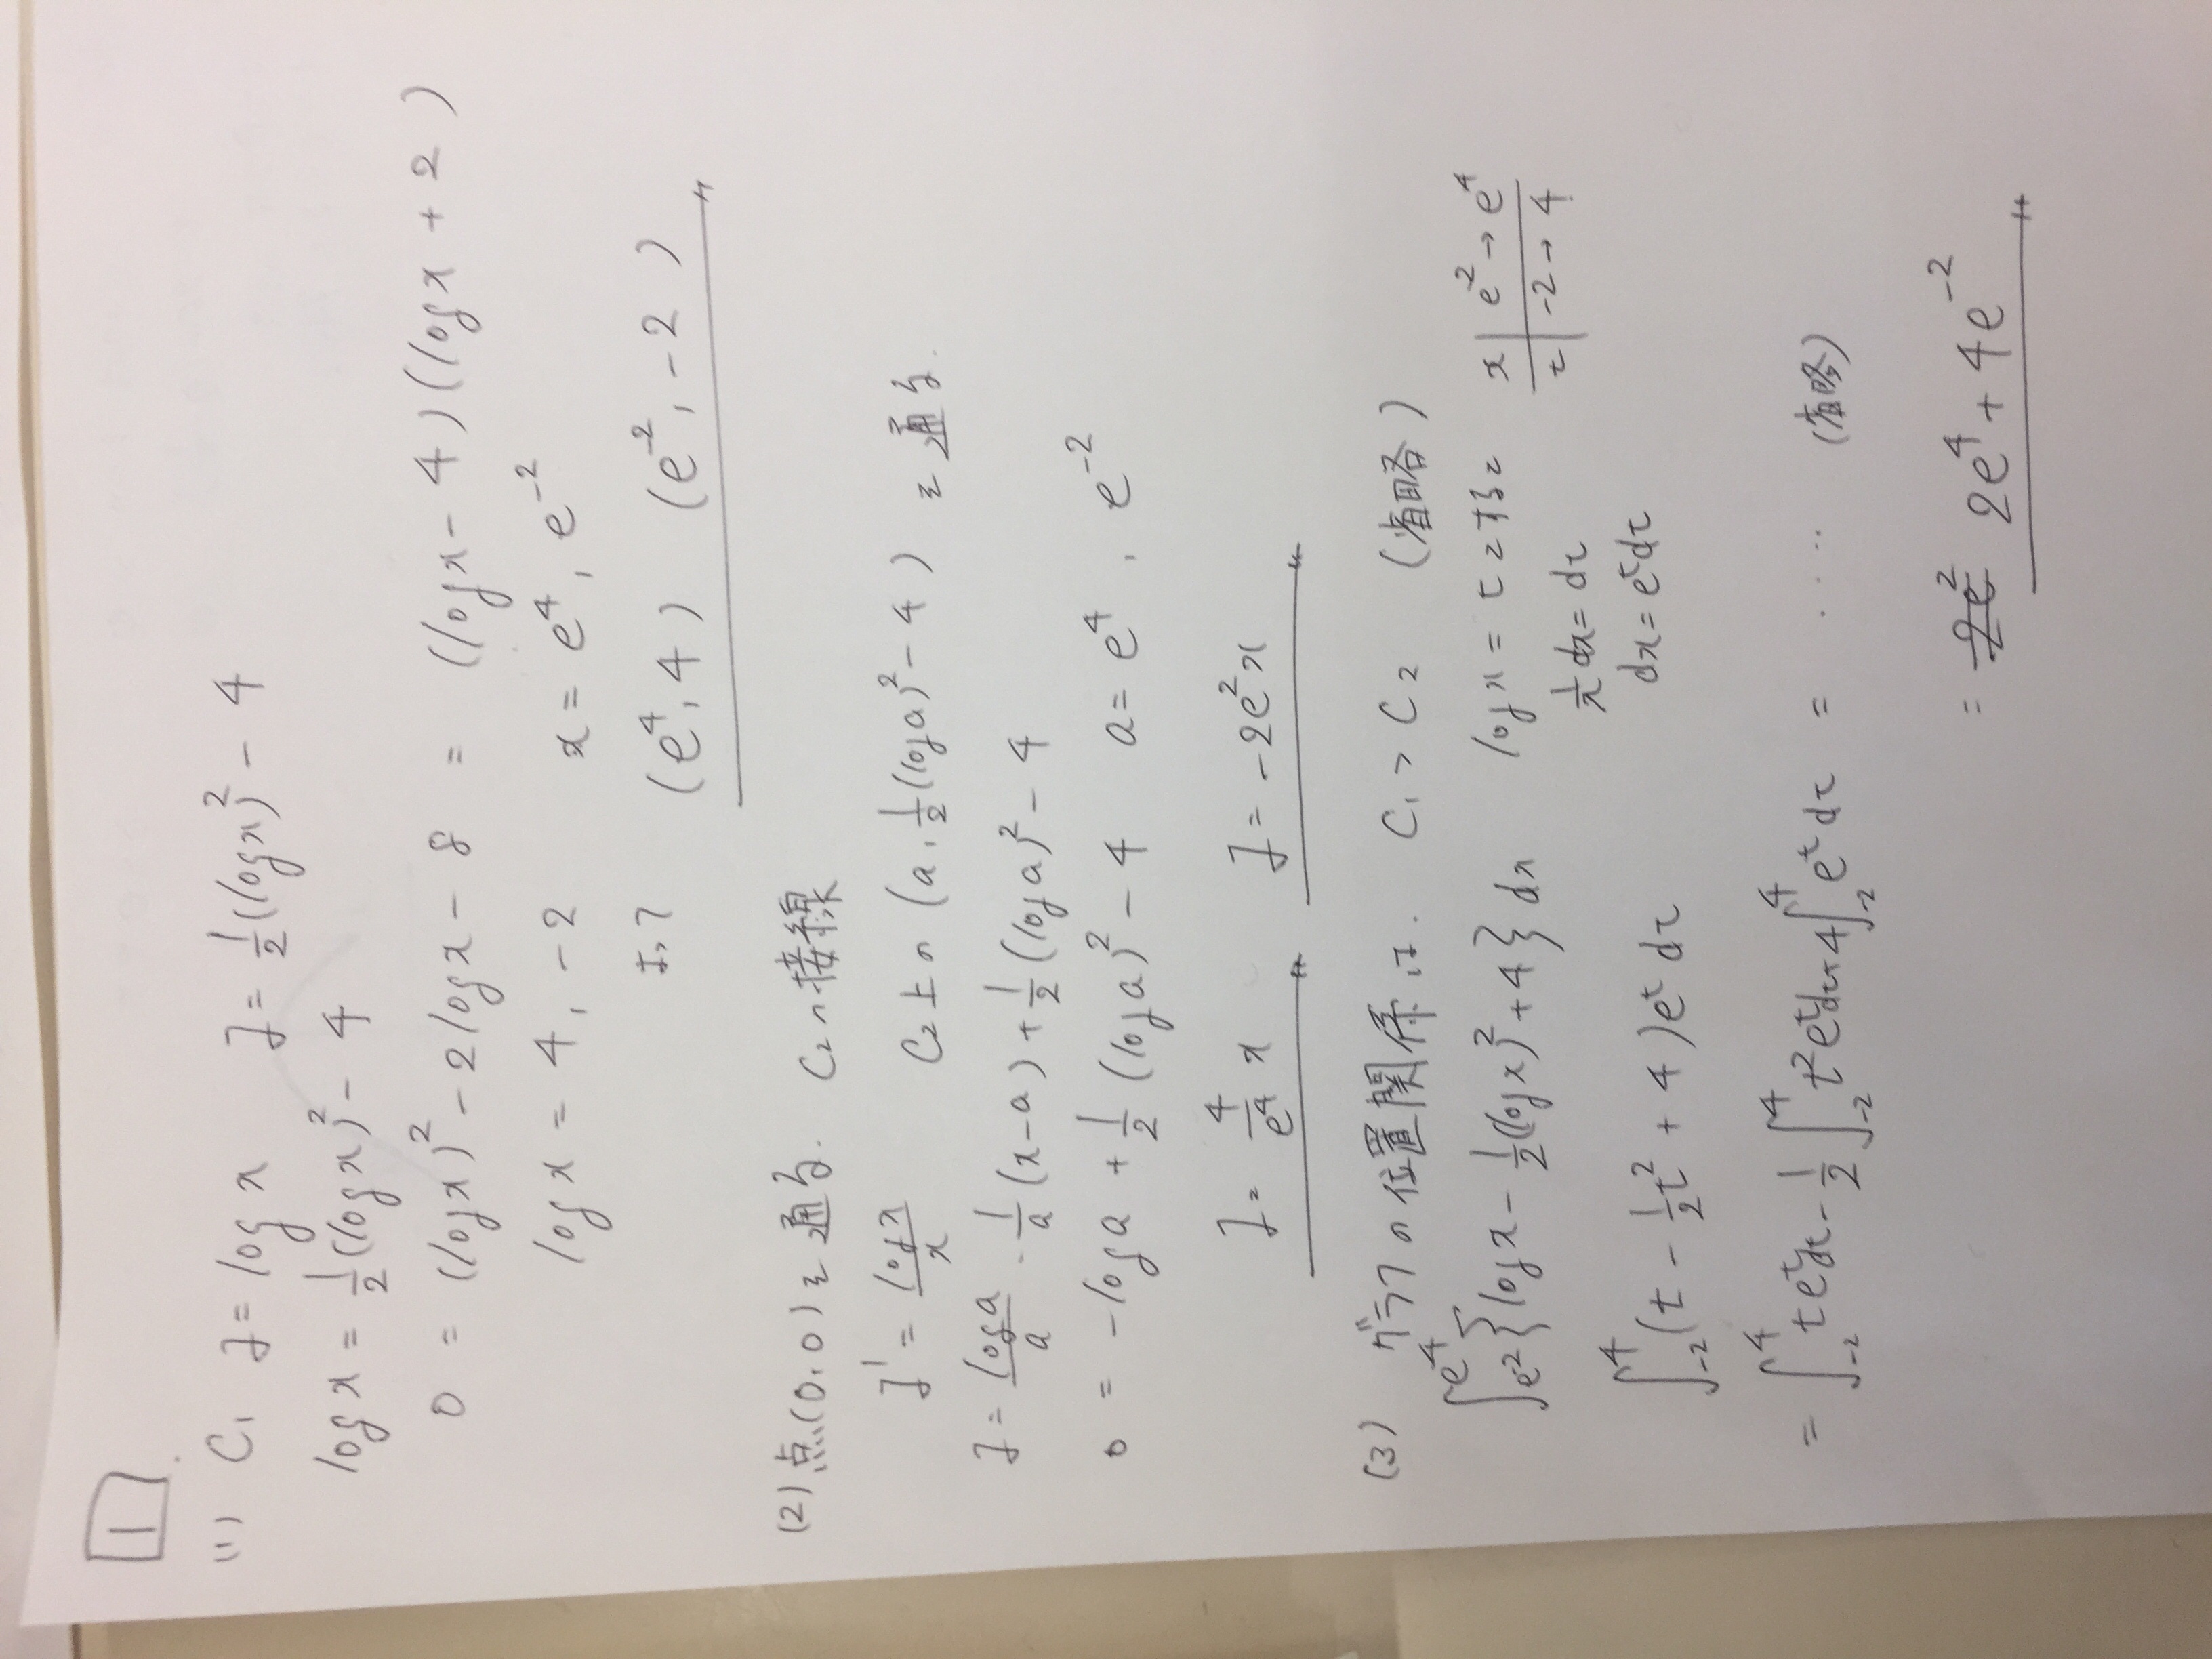 1
(1) C₁ y = log x  y = 1/2(log x)² - 4
log x = 1/2(log x)² - 4
0 = (log x)² - 2log x - 8 = (log x - 4)(log x + 2)
log x = 4, -2  x = e⁴, e⁻²
よって (e⁴, 4) (e⁻², -2)
(2) 点(0,0)を通る. C₂の接線
y' = log x/x  C₂上の (a, 1/2(log a)² - 4) を通る.
y = log a/a · 1/a (x-a) + 1/2(log a)² - 4
0 = -log a + 1/2(log a)² - 4  a = e⁴, e⁻²
y = 4/e⁴ x  y = -2e²x
(3) グラフの位置関係は. C₁ > C₂ (省略)
∫e²^e⁴ {log x - 1/2(log x)² + 4} dx  log x = t とすると  x | e⁻² → e⁴
1/x dx = dt  t | -2 → 4
∫₋₂⁴ (t - 1/2t² + 4)eᵗ dt  dx = eᵗdt
= ∫₋₂⁴ teᵗdt - 1/2 ∫₋₂⁴ t²eᵗdt + 4∫₋₂⁴ eᵗdt = ····· (省略)
= 2e² 2e⁴ + 4e⁻²